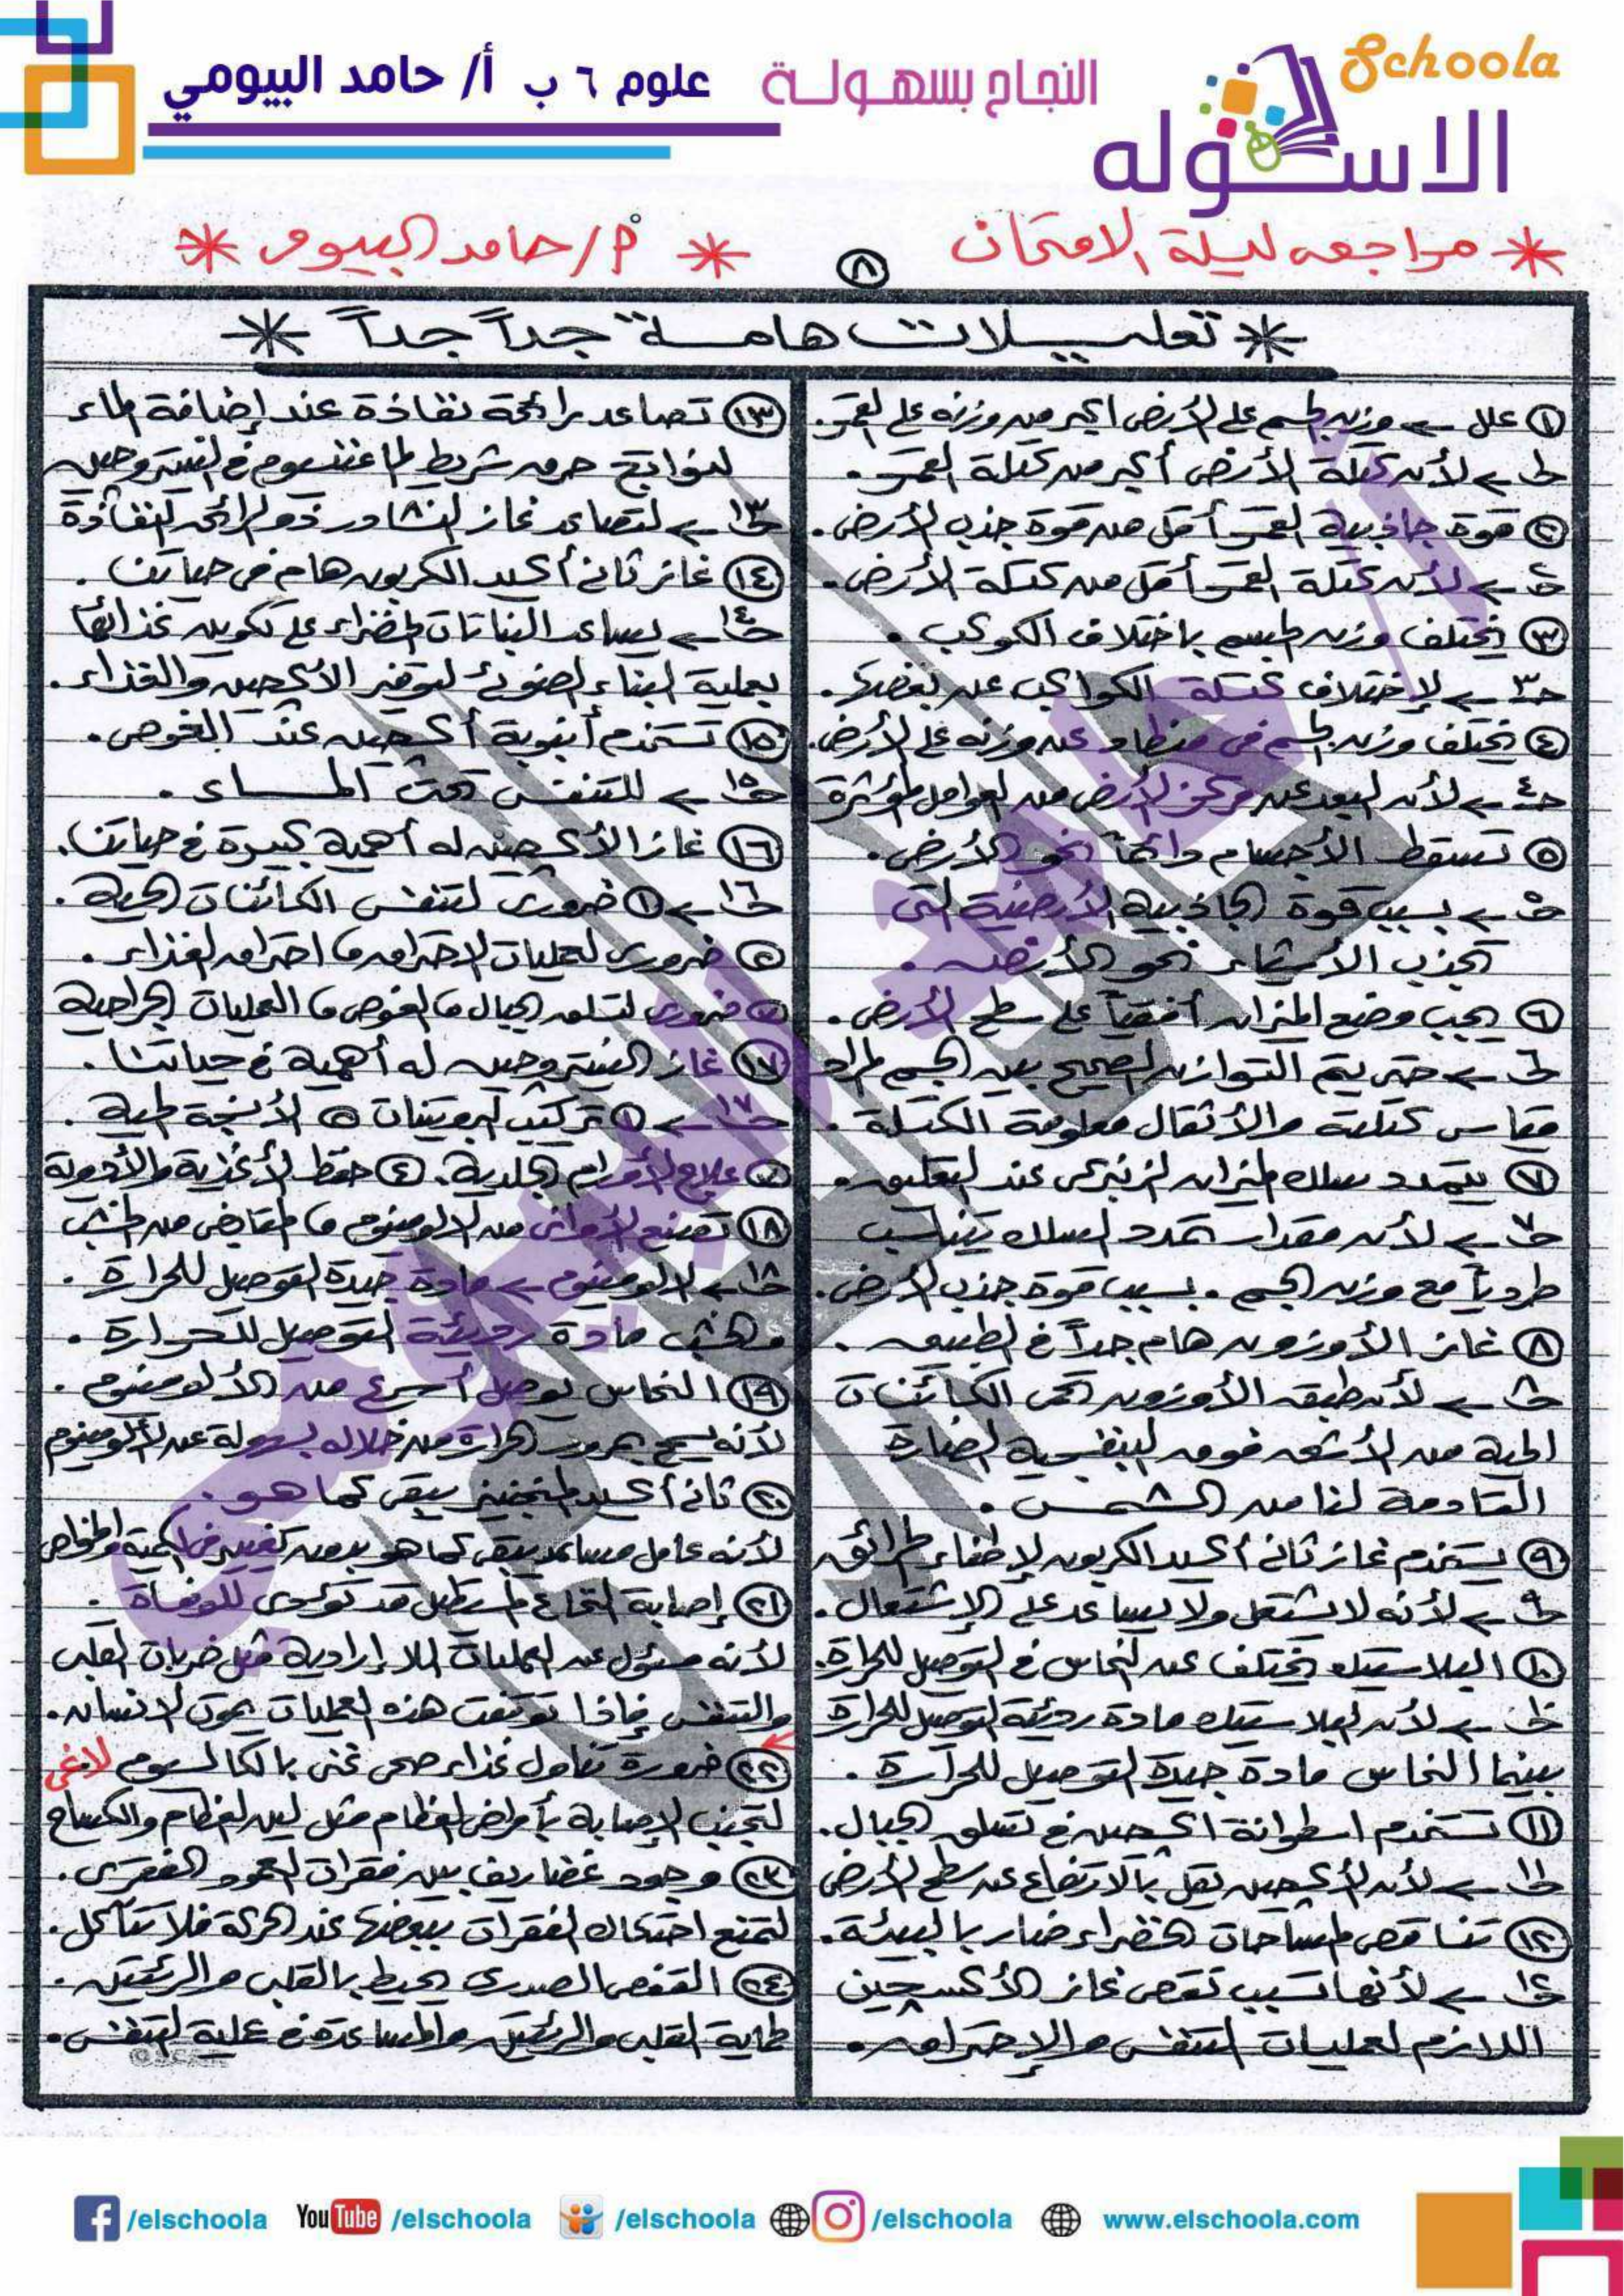 Schoola
الاسكوله
النجاح بسهولة
علوم ٦ ب أ/ حامد البيومي
* مراجعه ليلة الامتحان * أ/حامد البيومى *
٨
* تعليلات هامة جداً جداً *
١ علل ← وزن الجسم على الأرض أكبر من وزنه على القمر.
جـ١ ← لأن كتلة الأرض أكبر من كتلة القمر.
٢ قوة جاذبية القمر أقل من قوة جذب الأرض.
جـ٢ ← لأن كتلة القمر أقل من كتلة الأرض.
٣ يختلف وزن الجسم باختلاف الكوكب.
جـ٣ ← لإختلاف كتلة الكواكب عن بعضها.
٤ يختلف وزن الجسم فى منطاد عن وزنه على الأرض.
جـ٤ ← لأن البعد عن مركز الأرض من العوامل المؤثرة
٥ تسقط الأجسام دائماً نحو الأرض.
جـ٥ ← بسبب قوة الجاذبية الأرضية التى
تجذب الأشياء نحو الأرض.
٦ يجب وضع الميزان أفقياً على سطح الأرض.
جـ٦ ← حتى يتم التوازن الصحيح بين الجسم المراد
قياس كتلته والأثقال معلومة الكتلة.
٧ يتمدد سلك الميزان الزنبركى عند التعليق.
جـ٧ ← لأن مقدار تمدد السلك يتناسب
طردياً مع وزن الجسم. بسبب قوة جذب الأرض.
٨ غاز الأوزون هام جداً فى الطبيعه.
جـ٨ ← لأن طبقه الأوزون تحمى الكائنات
الحية من الأشعه فوق البنفسجية الضارة
القادمة لنا من الشمس.
٩ يستخدم غاز ثانى أكسيد الكربون لإطفاء الحرائق
جـ٩ ← لأنه لا يشتعل ولا يساعد على الإشتعال.
١٠ البلاستيك يختلف عن النحاس فى التوصيل للحرارة.
جـ١٠ ← لأن البلاستيك مادة رديئة التوصيل للحرارة
بينما النحاس مادة جيدة التوصيل للحرارة.
١١ تستخدم اسطوانة اكسجين فى تسلق الجبال.
جـ١١ ← لأن الأكسجين يقل بالارتفاع عن سطح الأرض
١٢ تناقص المساحات الخضراء ضار بالبيئة.
جـ١٢ ← لأنها تسبب نقص غاز الأكسجين
اللازم لعمليات التنفس والإحتراق.
١٣ تصاعد رائحة نفاذة عند إضافة الماء
لنواتج حرق شريط الماغنسيوم فى النيتروجين
جـ١٣ ← لتصاعد غاز النشادر ذو الرائحه النفاذة
١٤ غاز ثانى أكسيد الكربون هام فى حياتنا.
جـ١٤ ← يساعد النباتات الخضراء على تكوين غذائها
بعملية البناء الضوئى لتوفير الأكسجين والغذاء.
١٥ تستخدم أنبوبة أكسجين عند الغوص.
جـ١٥ ← للتنفس تحت المـــاء.
١٦ غاز الأكسجين له أهمية كبيرة فى حياتنا.
جـ١٦ ← ١ ضرورى لتنفس الكائنات الحية.
٢ ضرورى لعمليات الاحتراق واحتراق الغذاء.
٣ ضرورى لتسلق الجبال والغوص والعمليات الجراحية
١٧ غاز النيتروجين له أهمية فى حياتنا.
جـ١٧ ← ١ تركيب البروتينات ٢ الأنسجة الحية.
٣ علاج الأورام الجلدية. ٤ حفظ الأغذية والأدوية
١٨ تصنع الأوانى من الالومنيوم والمقابض من الخشب
جـ١٨ ← الالومنيوم ← مادة جيدة التوصيل للحرارة.
والخشب مادة رديئة التوصيل للحرارة.
١٩ النحاس يوصل أسرع من الألومنيوم.
لأنه يسمح بمرور الحرارة من خلاله بسهولة عن الألومنيوم
٢٠ ثانى أكسيد المنجنيز يبقى كما هو.
لأنه عامل مساعد يبقى كما هو بدون تغيير فى الكمية والخواص
٢١ إصابة النخاع المستطيل قد تؤدى للوفاة.
لأنه مسئول عن العمليات اللا إرادية مثل ضربات القلب
والتنفس فإذا توقفت هذه العمليات يموت الانسان.
٢٢ ضرورة تناول غذاء صحى غنى بالكالسيوم لاغى
لتجنب الإصابة بأمراض العظام مثل لين العظام والكساح
٢٣ وجود غضاريف بين فقرات العمود الفقرى.
لتمنع احتكاك الفقرات ببعضها عند الحركة فلا تتآكل.
٢٤ القفص الصدرى يحيط بالقلب والرئتين.
لحماية القلب والرئتين والمساعدة فى عملية التنفس.
أ/ حامد البيومى
/elschoola YouTube /elschoola /elschoola /elschoola www.elschoola.com